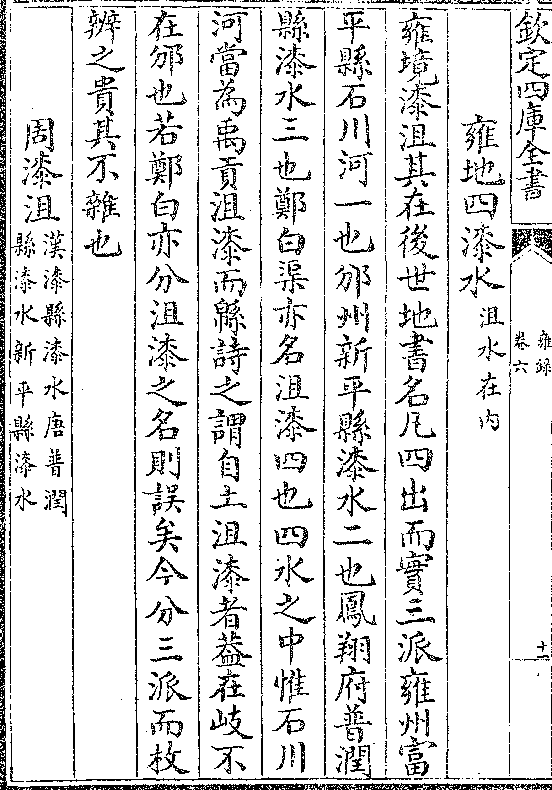 欽定四庫全書
雍錄
卷六
十一
雍地四漆水沮水在内
雍境漆沮其在後世地書名凡四出而實三派雍州富
平縣石川河一也邠州新平縣漆水二也鳳翔府普潤
縣漆水三也鄭白渠亦名沮漆四也四水之中惟石川
河當為禹貢沮漆而緜詩之謂自土沮漆者葢在岐不
在邠也若鄭白亦分沮漆之名則誤矣今分三派而枚
辨之貴其不雜也
周漆沮漢漆縣漆水唐普潤
縣漆水新平縣漆水